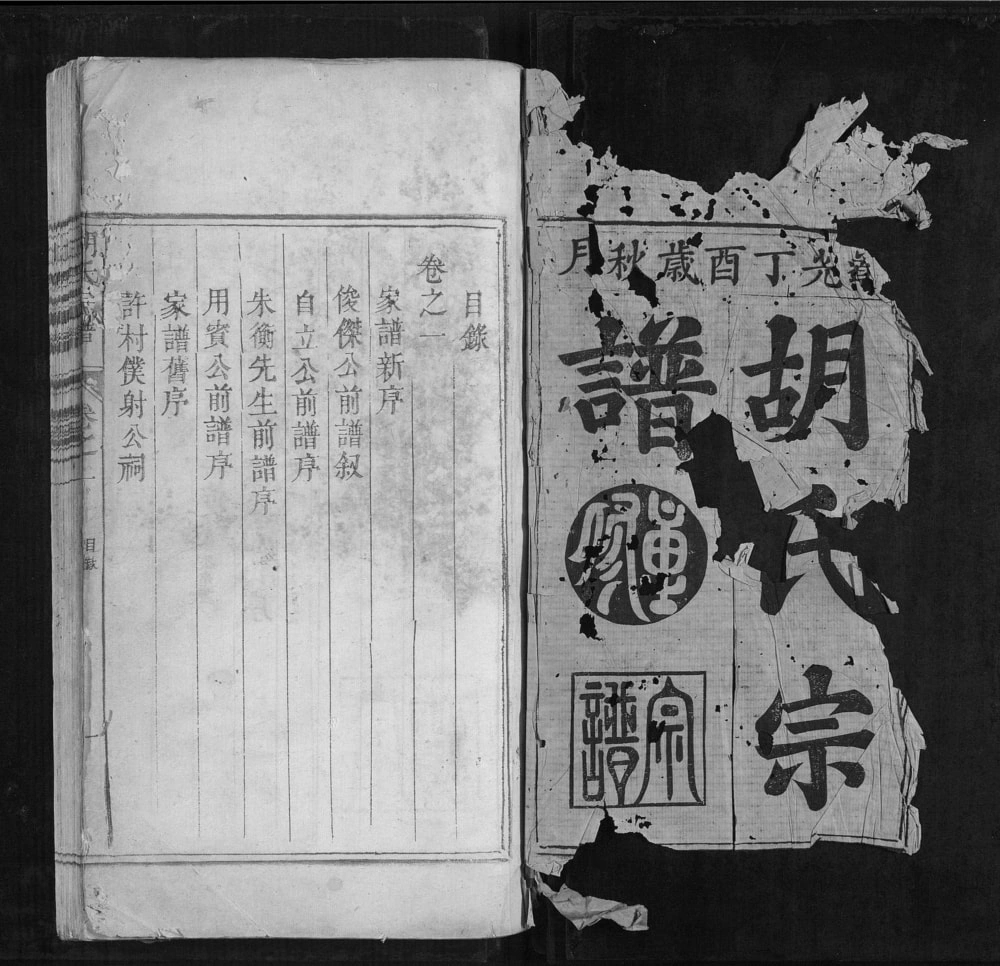 道光丁酉歲秋月
胡氏宗
譜
重修
宗譜
目錄
卷之一
家譜新序
俊傑公前譜叙
自立公前譜序
朱衡先生前譜序
用賓公前譜序
家譜舊序
許村僕射公祠
胡氏宗譜 卷之一 目錄